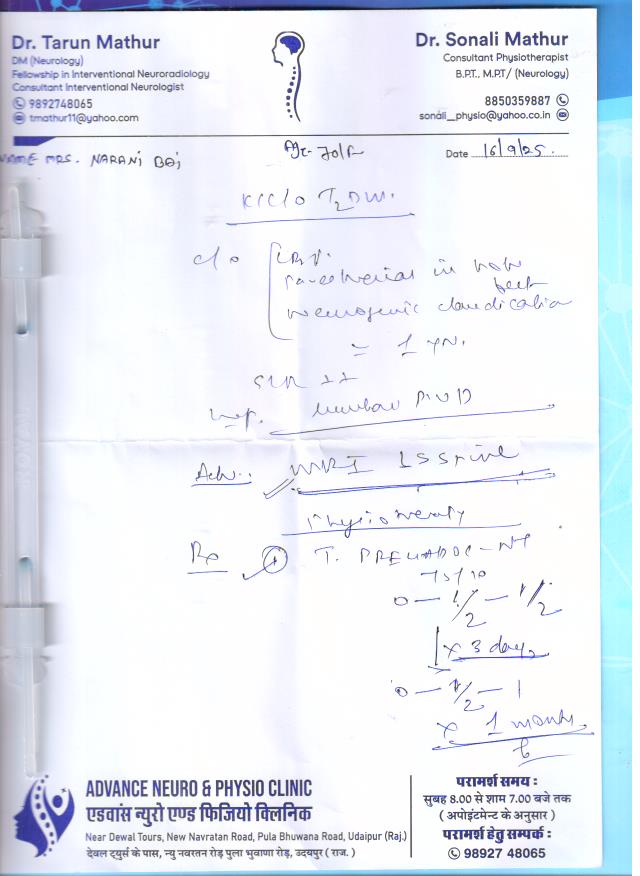 Dr. Tarun Mathur
DM (Neurology)
Fellowship in Interventional Neuroradiology
Consultant Interventional Neurologist
9892748065
tmathur11@yahoo.com
Dr. Sonali Mathur
Consultant Physiotherapist
B.P.T., M.P.T/ (Neurology)
8850359887
sonali_physio@yahoo.co.in
NAME MRS. NARANI BAI
70/F
Date 16/9/25.
K/C/o T2DM.
c/o LBP.
paresthesias in both feet
neurogenic claudication
1 yr.
SLR
Imp. Lumbar PIVD
Adv. MRI LS Spine
Physiotherapy
Rx 1 T. -NT
75/10
0 — 1/2 — 1/2
x 3 days
0 — 1/2 — 1
x 1 month
ADVANCE NEURO & PHYSIO CLINIC
एडवांस न्युरो एण्ड फिजियो क्लिनिक
Near Dewal Tours, New Navratan Road, Pula Bhuwana Road, Udaipur (Raj.)
देवल ट्युर्स के पास, न्यु नवरतन रोड़ पुला भुवाणा रोड़, उदयपुर ( राज. )
परामर्श समय :
सुबह 8.00 से शाम 7.00 बजे तक
( अपोइंटमेन्ट के अनुसार )
परामर्श हेतु सम्पर्क :
98927 48065